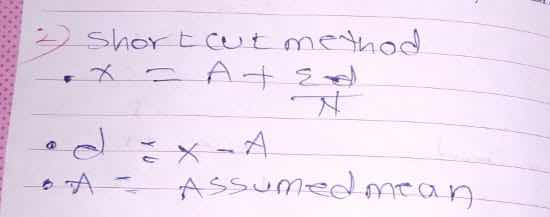 2) Shortcut method
• x = A + Σd
N
• d = x - A
• A = Assumed mean